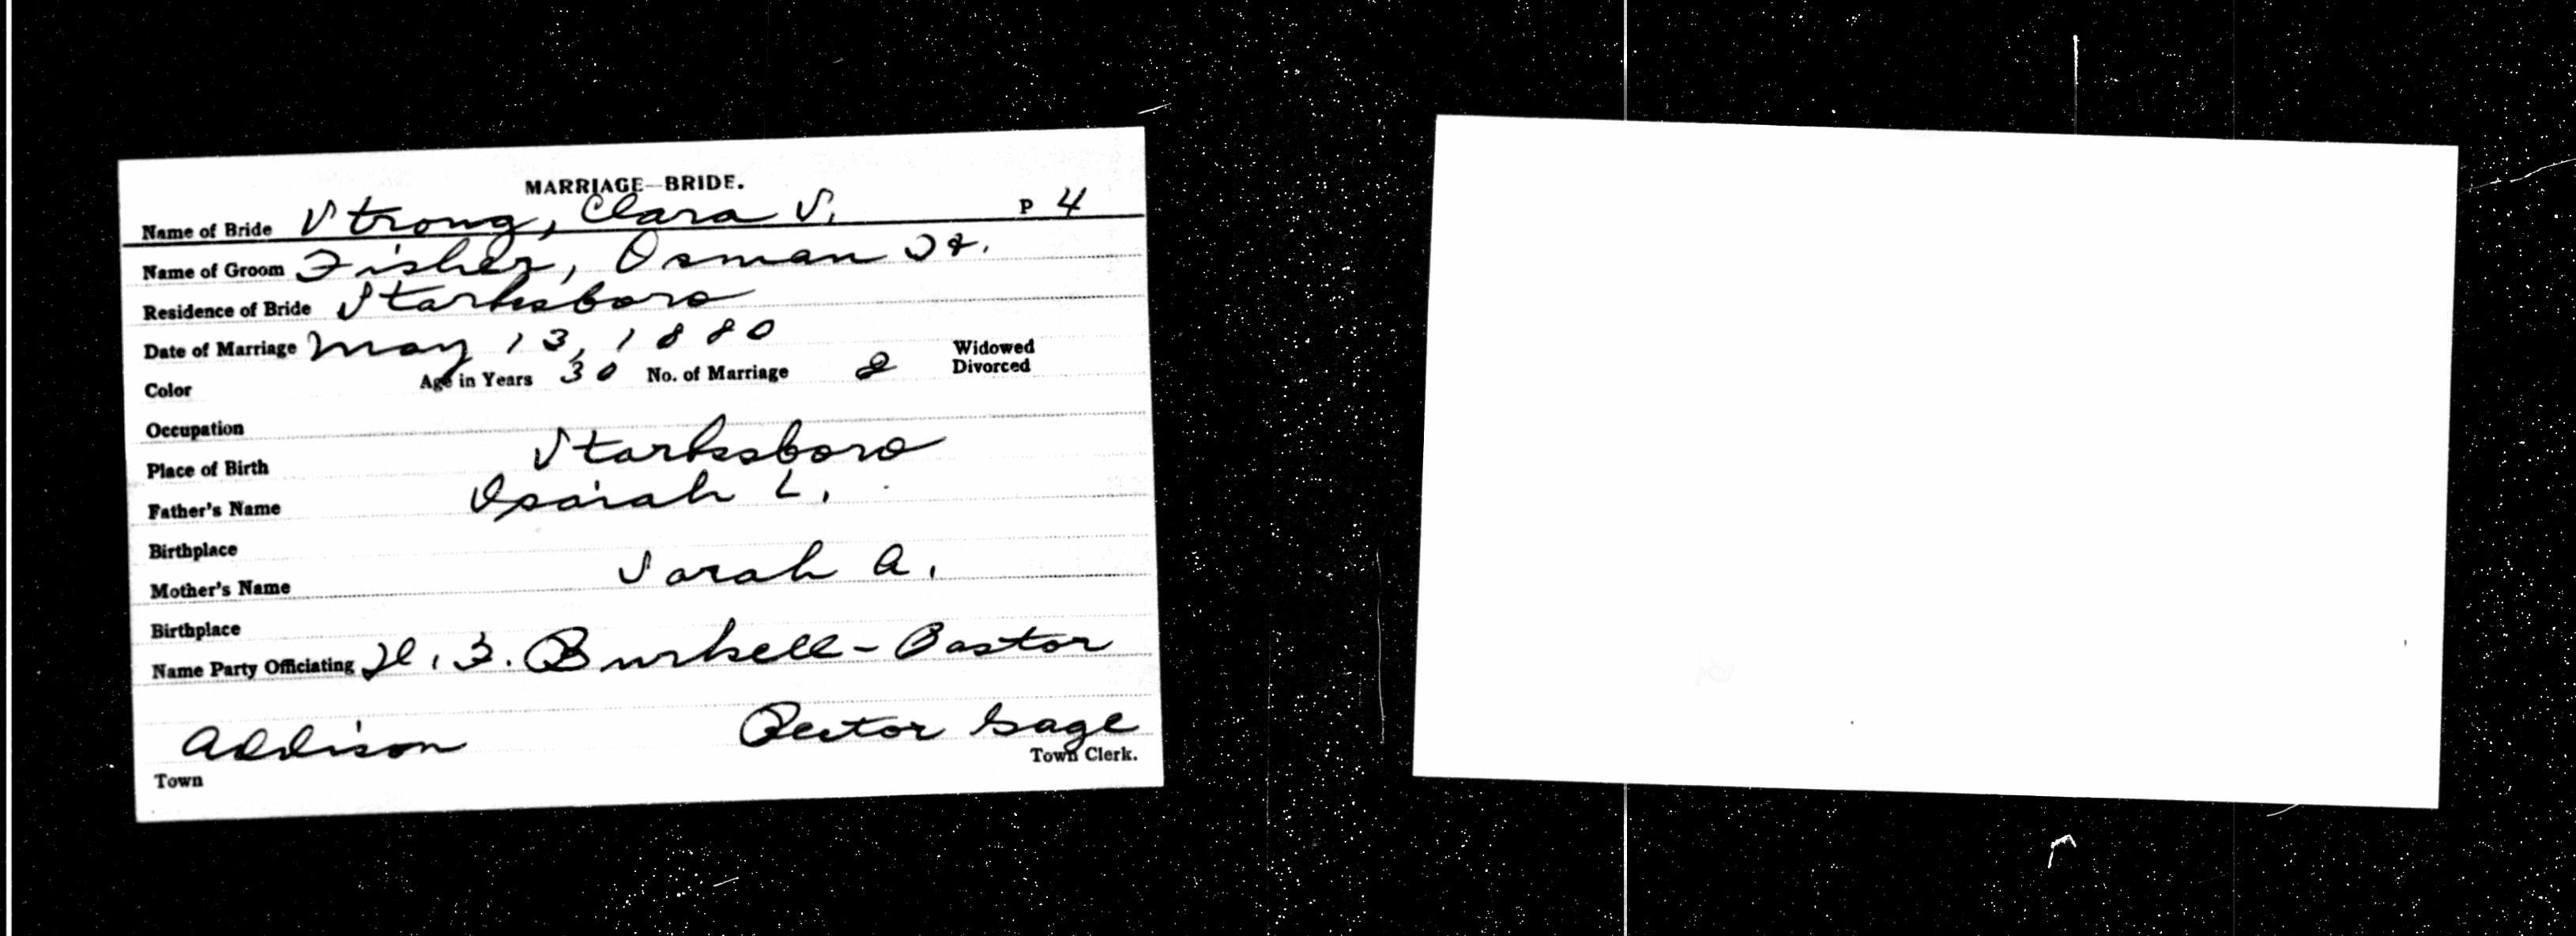 MARRIAGE—BRIDE.
Name of Bride Strong, Clara S. P 4
Name of Groom Fisher, Osman H.
Residence of Bride Starksboro
Date of Marriage May 13, 1880
Color Age in Years 30 No. of Marriage 2 Widowed Divorced
Occupation
Place of Birth Starksboro
Father's Name Isaiah L.
Birthplace
Mother's Name Sarah A.
Birthplace
Name Party Officiating H. F. Burkell - Pastor
Addison Rector Gage
Town Town Clerk.